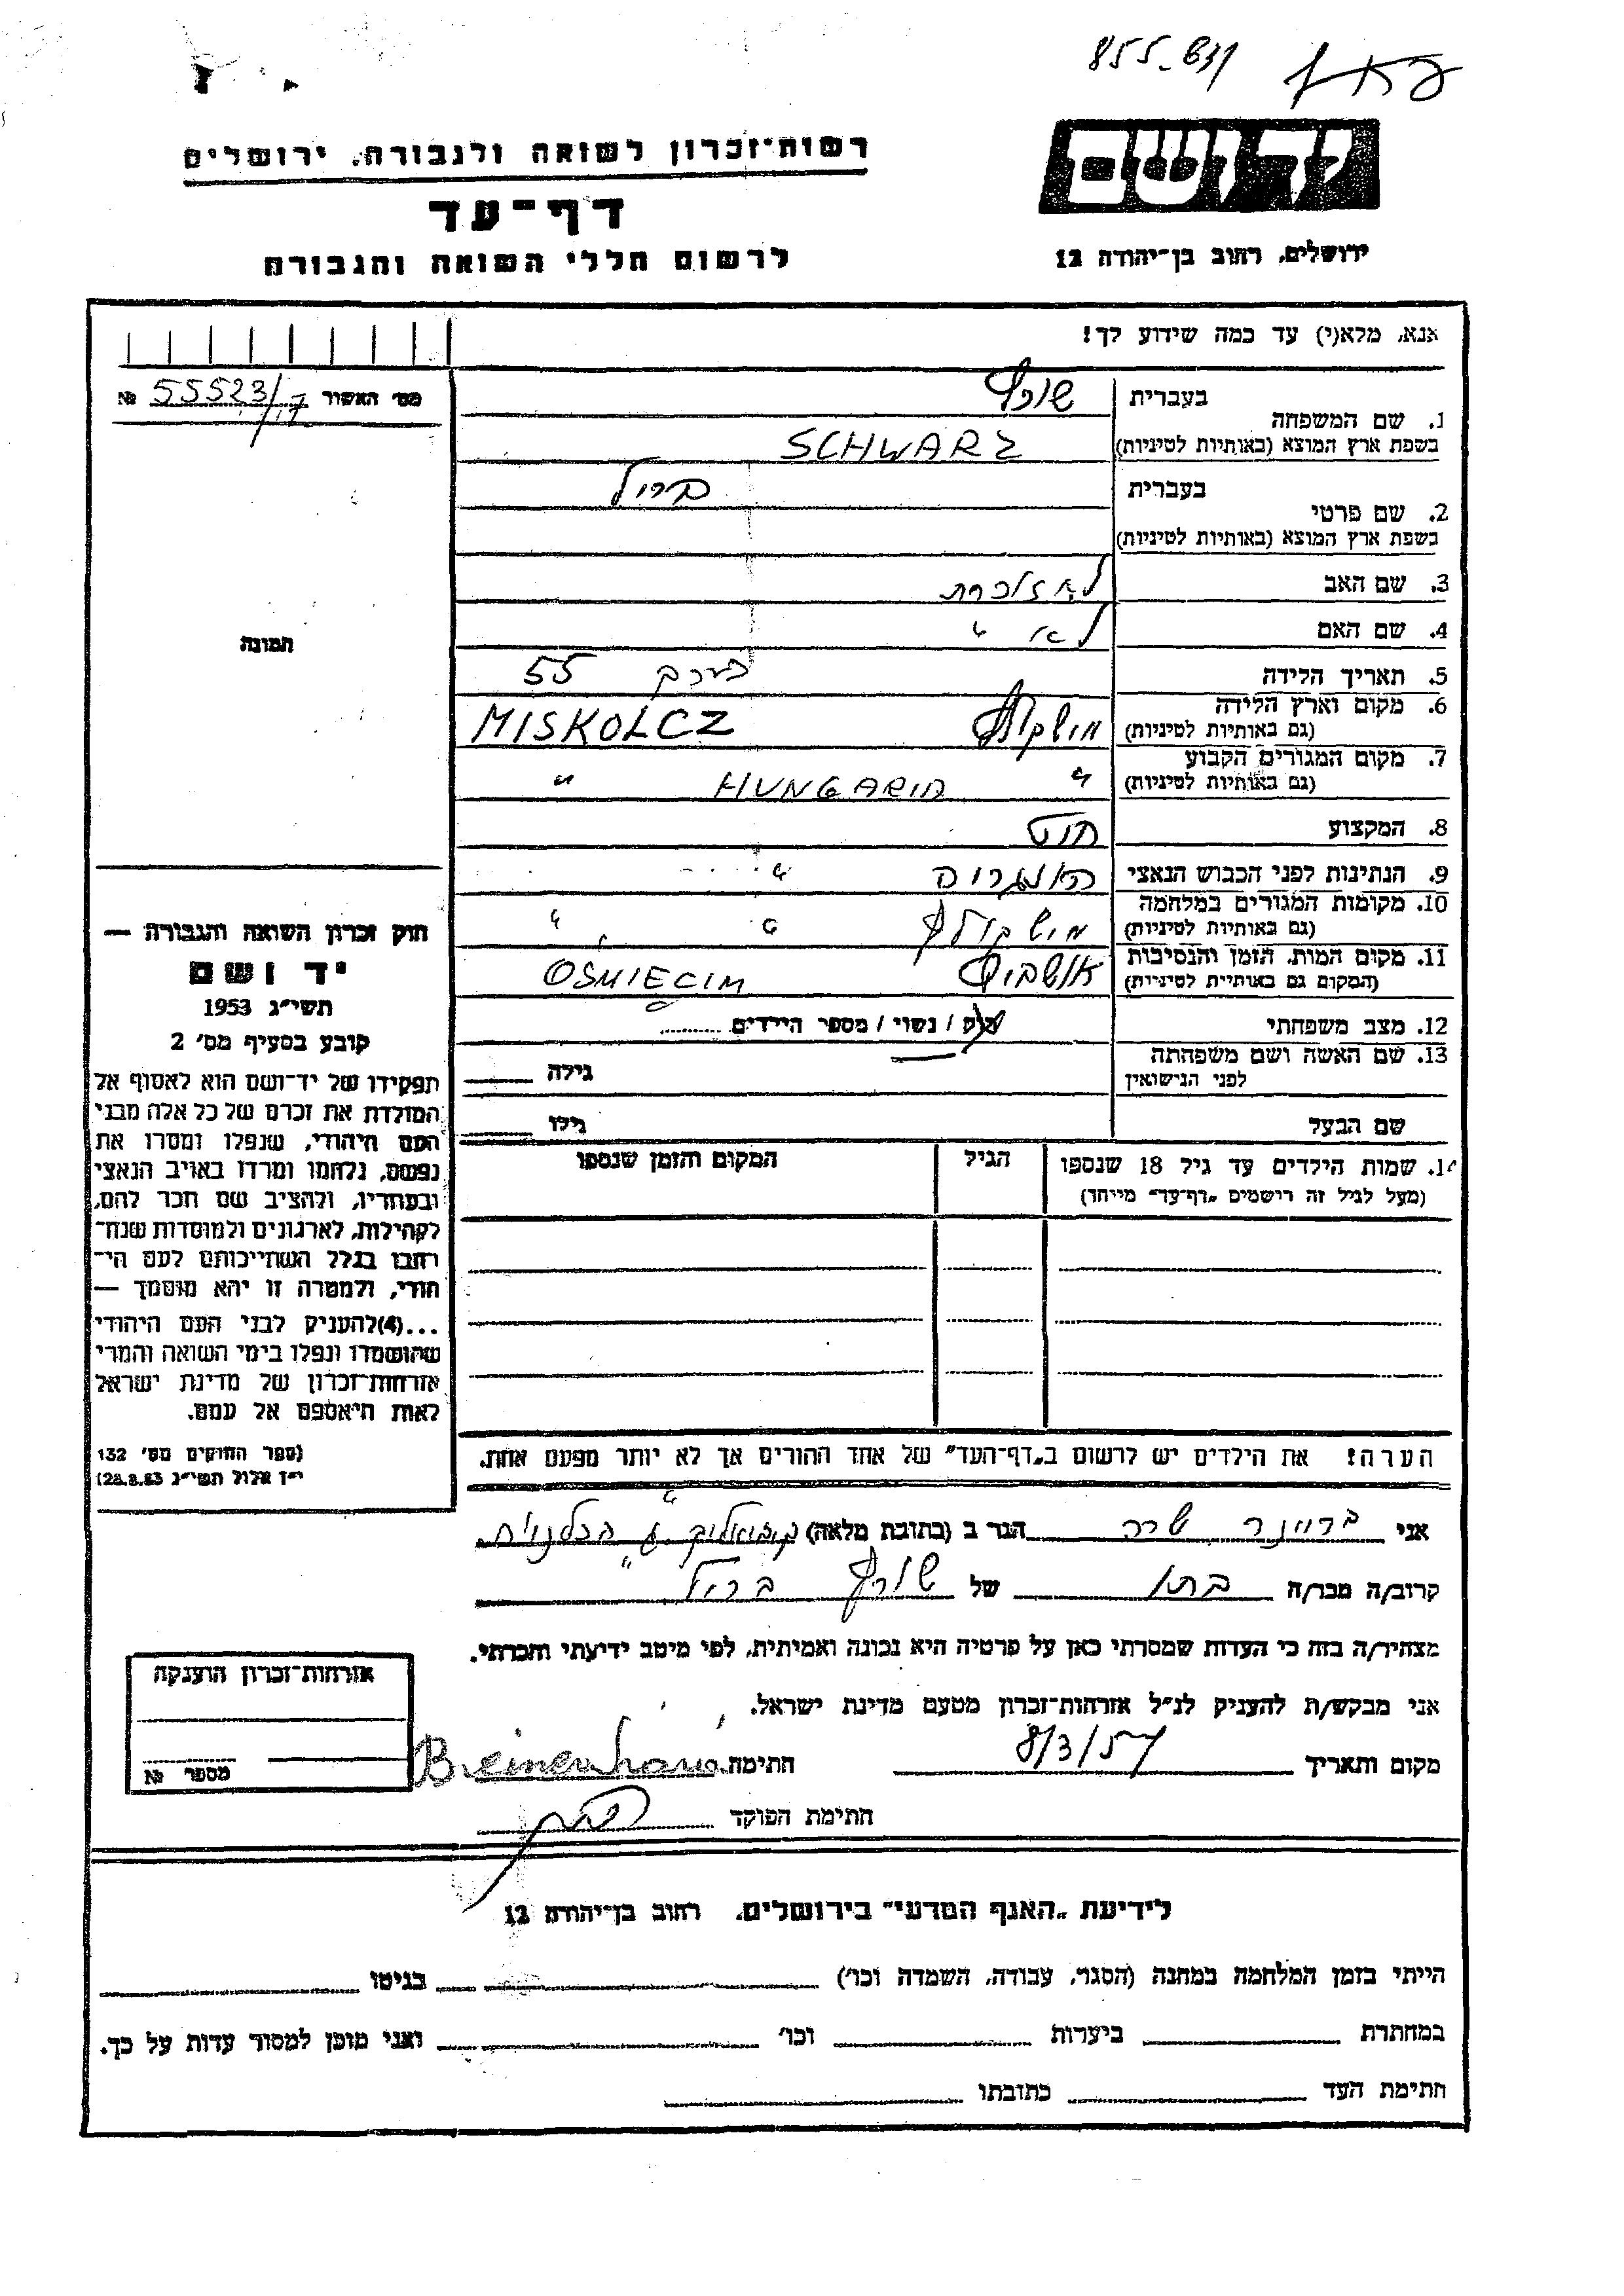 855-631
יד ושם
ירושלים, רחוב בן-יהודה 12
רשות-זכרון לשואה ולגבורה, ירושלים
דף-עד
לרשום חללי השואה והגבורה
אנא, מלא(י) עד כמה שידוע לך!
מס' האשור 55523/17 №
1. שם המשפחה
בעברית שורץ
בשפת ארץ המוצא (באותיות לטיניות) SCHWARZ
2. שם פרטי
בעברית ברוך
בשפת ארץ המוצא (באותיות לטיניות)
3. שם האב לא זוכרת
4. שם האם לא "
5. תאריך הלידה בערך 55
6. מקום וארץ הלידה
(גם באותיות לטיניות) מישקולץ MISKOLCZ
7. מקום המגורים הקבוע
(גם באותיות לטיניות) " HUNGARIA "
8. המקצוע
9. הנתינות לפני הכבוש הנאצי הונגריה "
10. מקומות המגורים במלחמה
(גם באותיות לטיניות) מישקולץ " " "
11. מקום המות, הזמן והנסיבות
(המקום גם באותיות לטיניות) אושביץ OSWIECIM
12. מצב משפחתי רוק / נשוי / מספר הילדים
13. שם האשה ושם משפחתה
לפני הנישואין
גילה
שם הבעל גילו
14. שמות הילדים עד גיל 18 שנספו
(מעל לגיל זה רושמים "דף-עד" מייחד)
הגיל
המקום והזמן שנספו
הערה! את הילדים יש לרשום ב"דף-העד" של אחד ההורים אך לא יותר מפעם אחת.
תמונה
חוק זכרון השואה והגבורה —
יד ושם
תשי"ג 1953
קובע בסעיף מס' 2
תפקידו של יד-ושם הוא לאסוף אל
המולדת את זכרם של כל אלה מבני
העם היהודי, שנפלו ומסרו את
נפשם, נלחמו ומרדו באויב הנאצי
ובעוזריו, ולהציב שם וזכר להם,
לקהילות, לארגונים ולמוסדות שנח-
רבו בגלל השתייכותם לעם הי-
הודי, ולמטרה זו יהא מוסמך —
...(4)להעניק לבני העם היהודי
שהושמדו ונפלו בימי השואה והמרי
אזרחות-זכרון של מדינת ישראל
לאות היאספם אל עמם.
(ספר החוקים מס' 132
י"ז אלול תשי"ג 28.8.53)
אני בריינר שרה הגר ב (כתובת מלאה)
קרוב/ה מכר/ה בתו של שורץ ברוך
מצהיר/ה בזה כי העדות שמסרתי כאן על פרטיה היא נכונה ואמיתית, לפי מיטב ידיעתי והכרתי.
אני מבקש/ת להעניק לנ"ל אזרחות-זכרון מטעם מדינת ישראל.
מקום ותאריך 8/3/57 חתימה
חתימת הפוקד
אזרחות-זכרון הוענקה
מספר №
לידיעת "האגף המדעי" בירושלים, רחוב בן-יהודה 12
הייתי בזמן המלחמה במחנה (הסגר, עבודה, השמדה וכו') בגיטו
במחתרת ביערות וכו' ואני מוכן למסור עדות על כך.
חתימת העד כתובתו